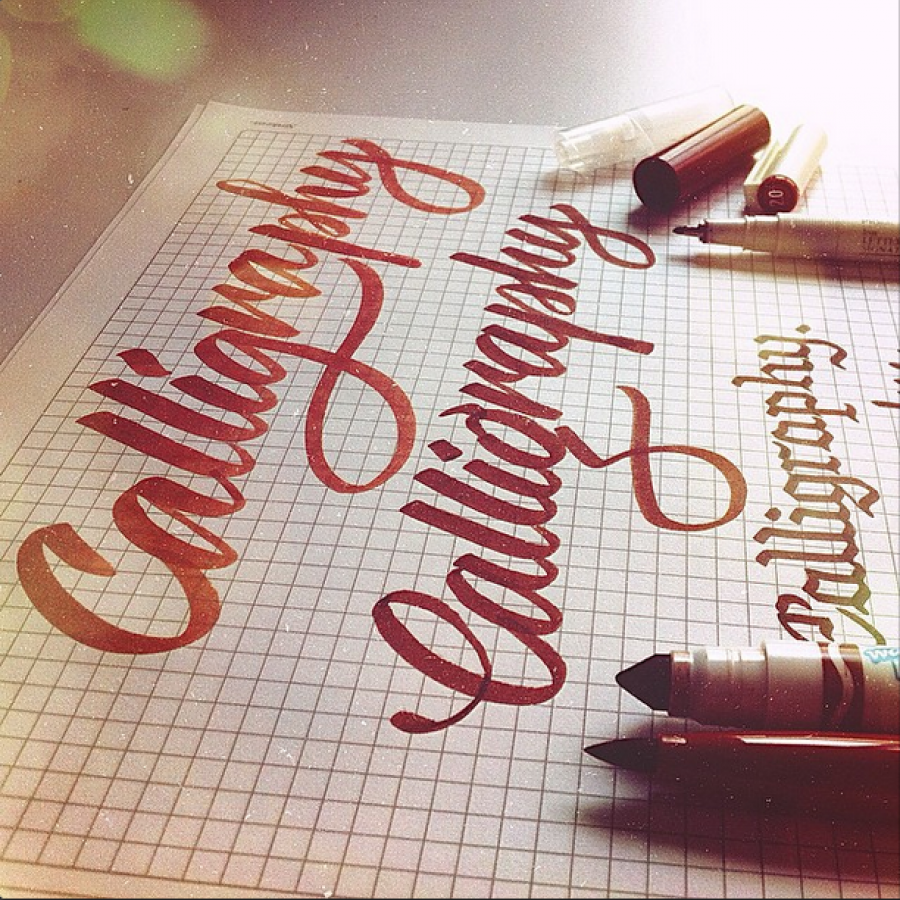 Calligraphy
Calligraphy
Calligraphy.
20